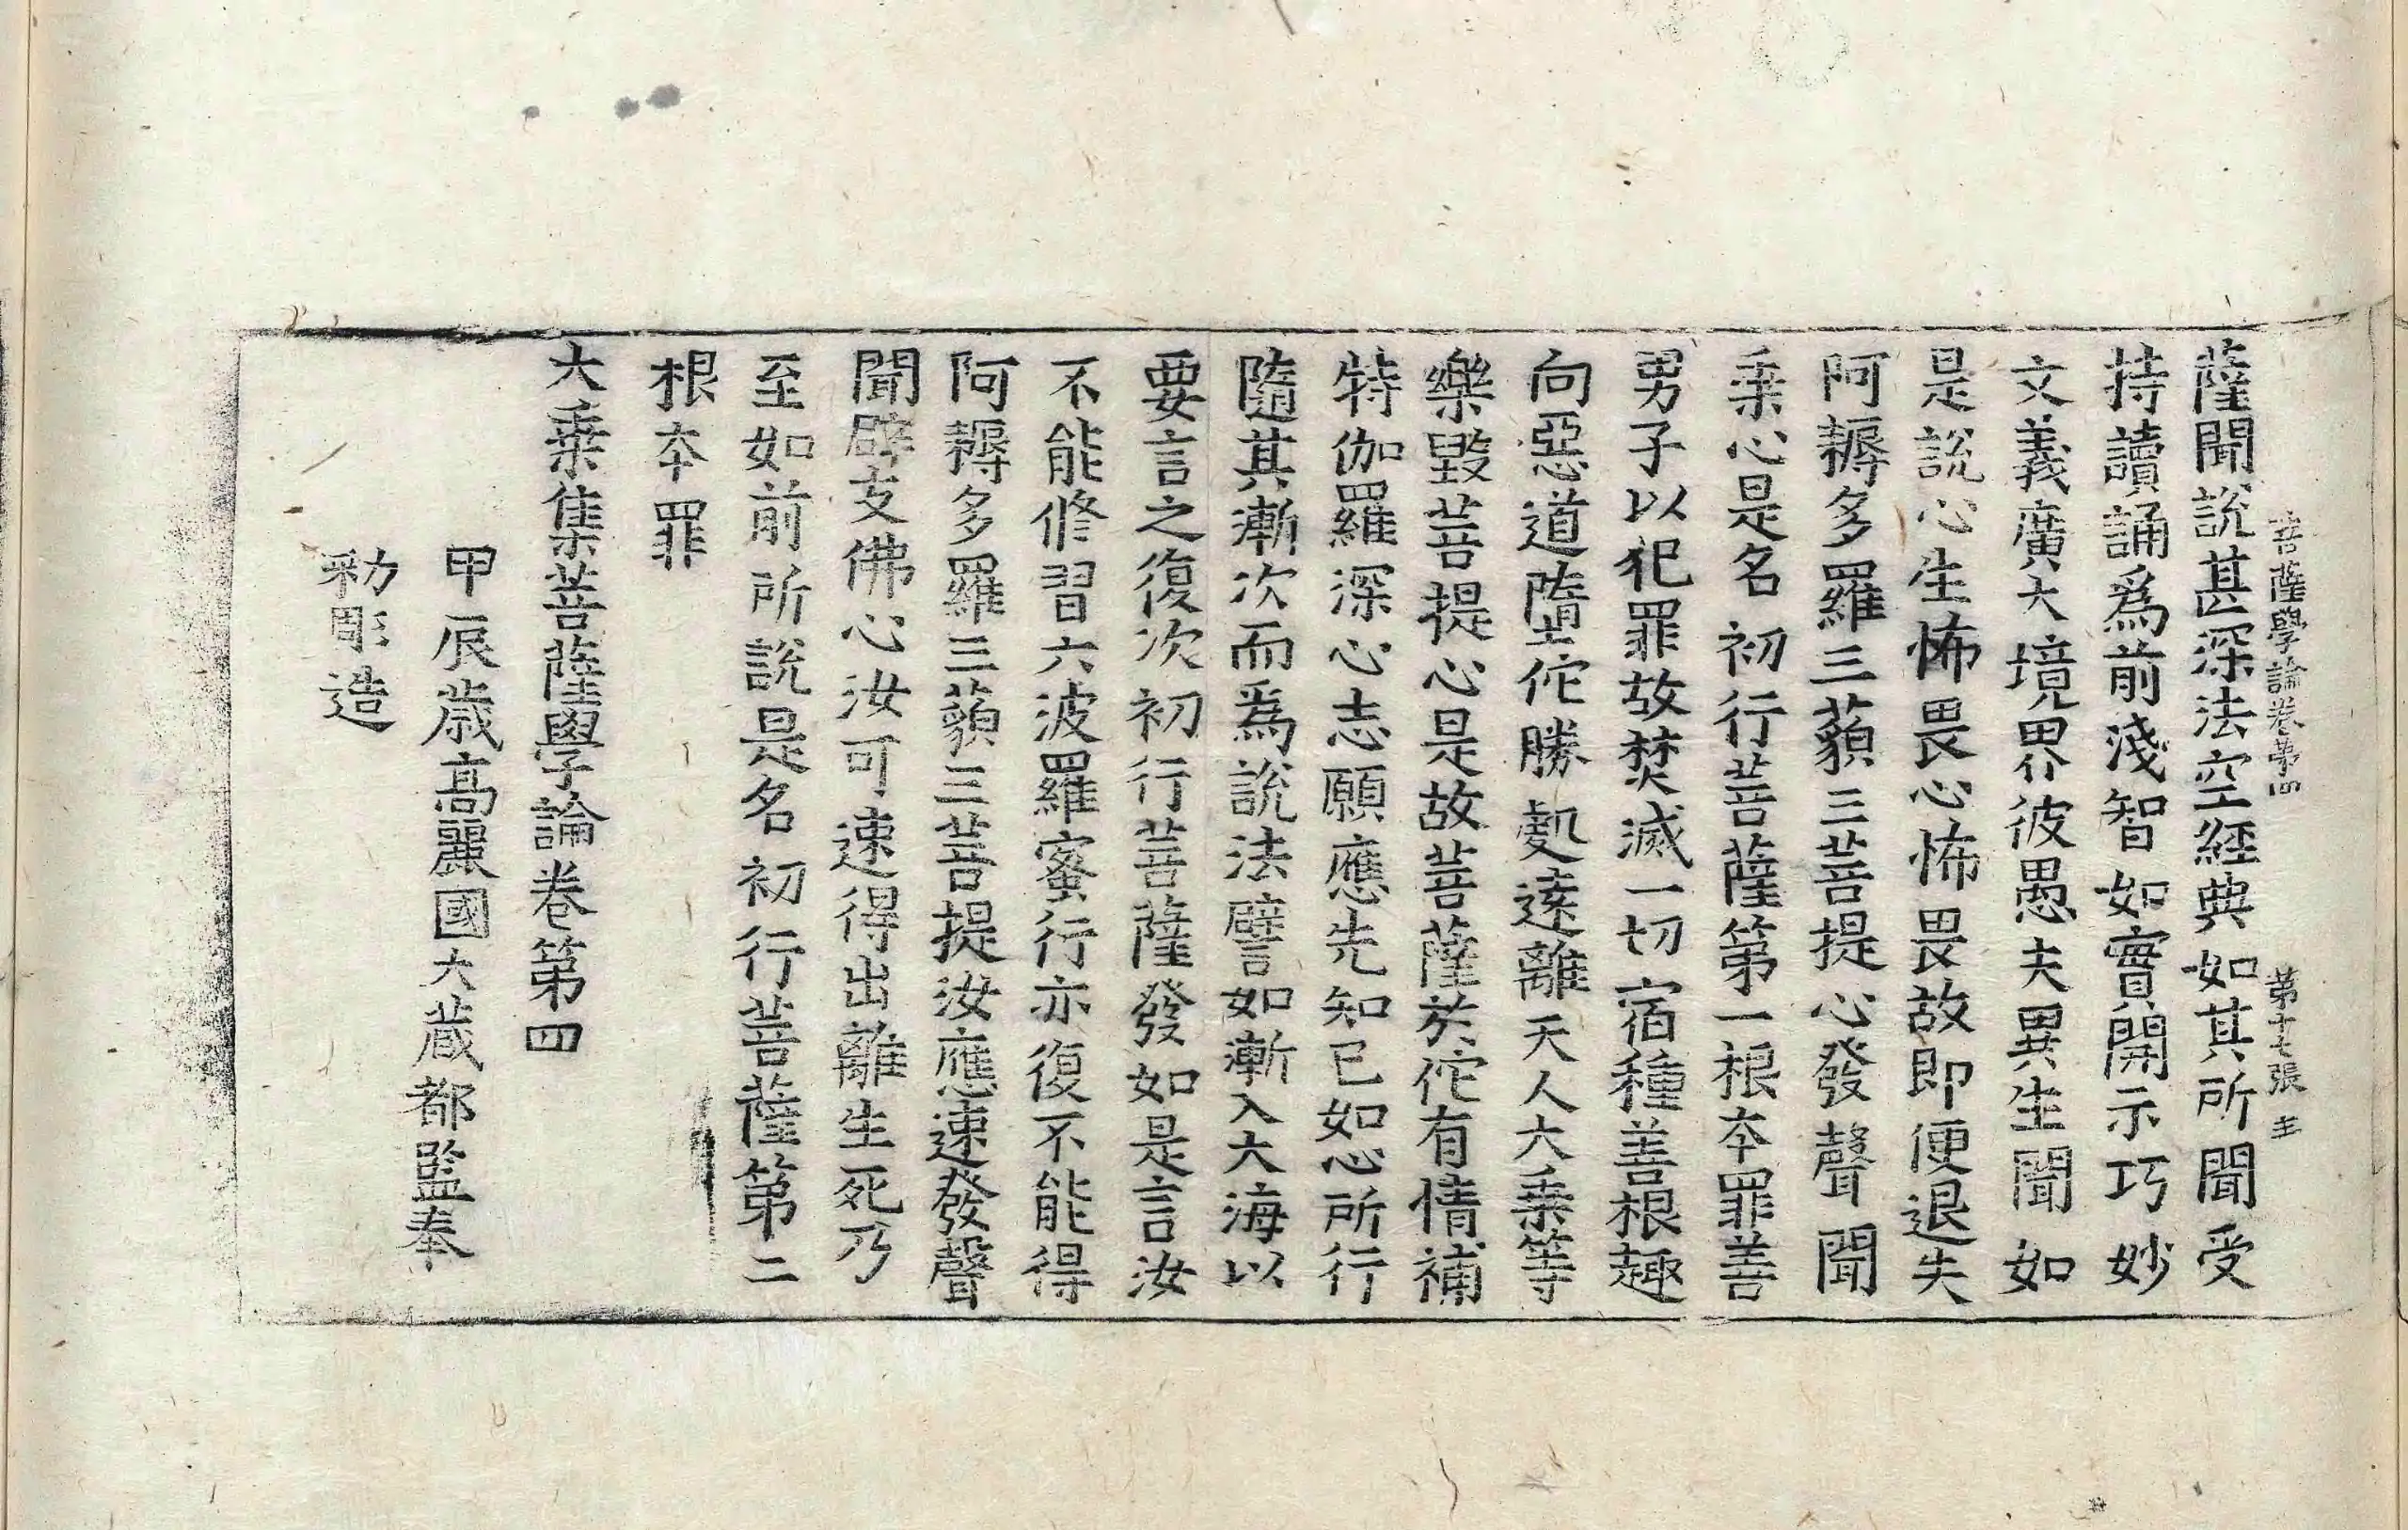 菩薩學論卷第四 第十七張 主
薩聞說甚深法空經典如其所聞受
持讀誦爲前淺智如實開示巧妙
文義廣大境界彼愚夫異生聞如
是說心生怖畏心怖畏故即便退失
阿耨多羅三藐三菩提心發聲聞
乘心是名初行菩薩第一根本罪善
男子以犯罪故焚滅一切宿種善根趣
向惡道墮佗勝處遠離天人大乘等
樂毀菩提心是故菩薩於佗有情補
特伽羅深心志願應先知已如心所行
隨其漸次而爲說法譬如漸入大海以
要言之復次初行菩薩發如是言汝
不能修習六波羅蜜行亦復不能得
阿耨多羅三藐三菩提汝應速發聲
聞辟支佛心汝可速得出離生死乃
至如前所說是名初行菩薩第二
根本罪
大乘集菩薩學論卷第四
甲辰歲高麗國大藏都監奉
勅彫造